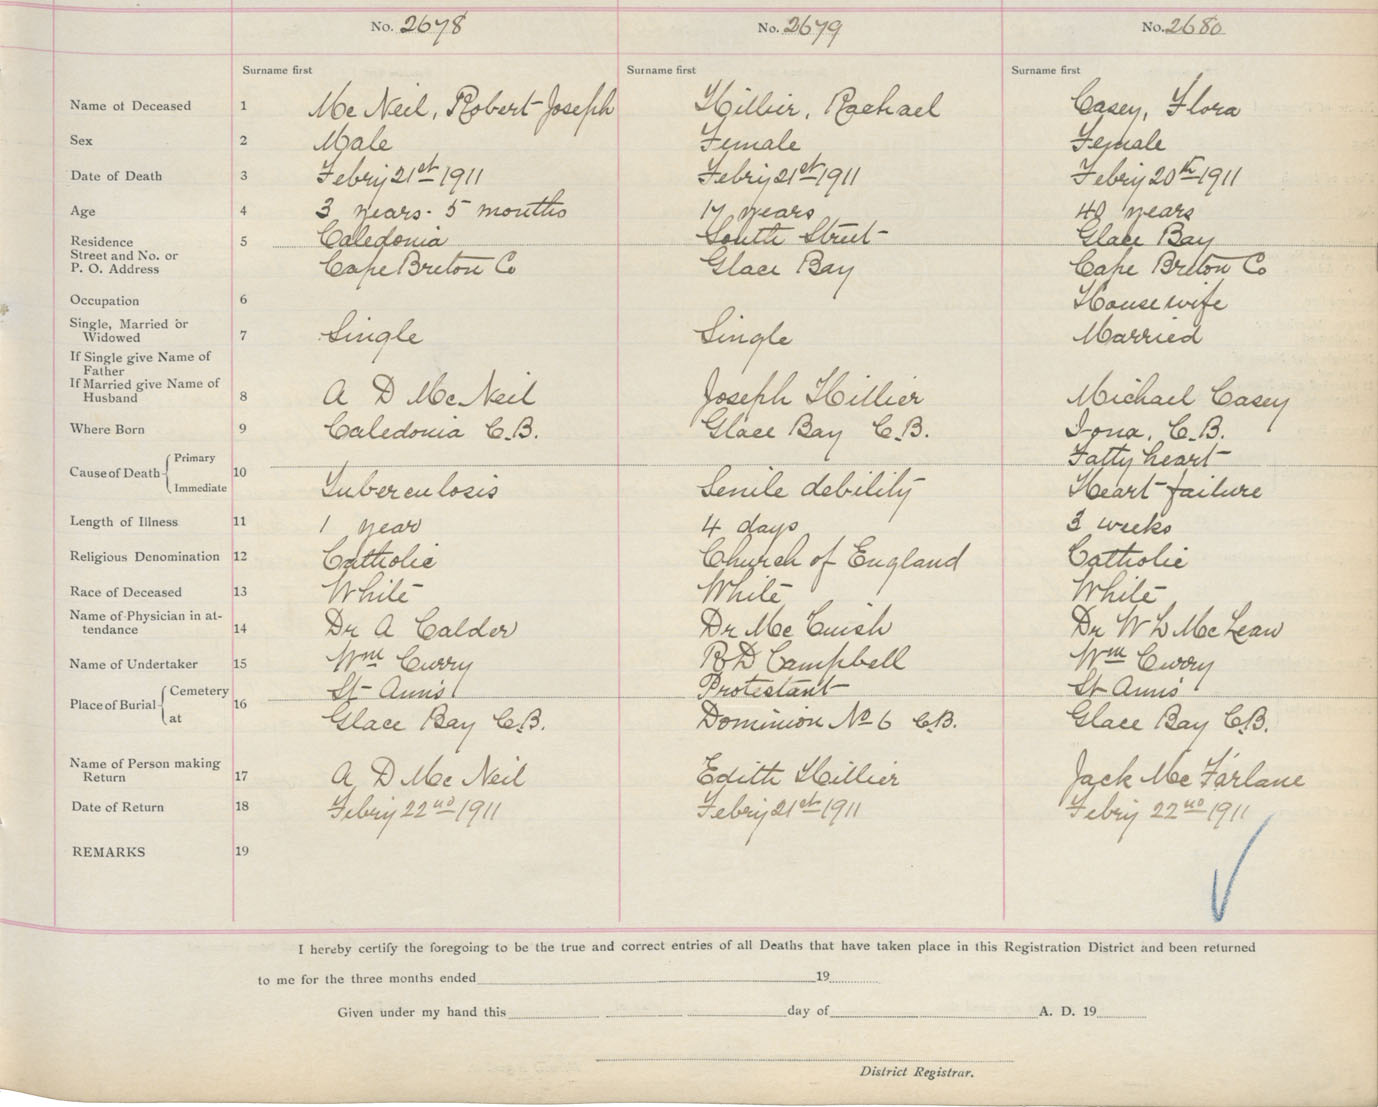 No. 2678 No. 2679 No. 2680
Surname first Surname first Surname first
Name of Deceased 1 McNeil, Robert Joseph Hillier, Rachael Casey, Flora
Sex 2 Male Female Female
Date of Death 3 Febry 21st 1911 Febry 21st 1911 Febry 20th 1911
Age 4 3 years. 5 months 17 years 40 years
Residence 5 Caledonia South Street Glace Bay
Street and No. or
P. O. Address Cape Breton Co Glace Bay Cape Breton Co
Occupation 6 Housewife
Single, Married or
Widowed 7 Single Single Married
If Single give Name of
Father
If Married give Name of
Husband 8 A D McNeil Joseph Hillier Michael Casey
Where Born 9 Caledonia C.B. Glace Bay C.B. Iona, C.B.
Cause of Death Primary Fatty heart
Immediate 10 Tuberculosis Senile debility Heart failure
Length of Illness 11 1 year 4 days 3 weeks
Religious Denomination 12 Catholic Church of England Catholic
Race of Deceased 13 White White White
Name of Physician in at-
tendance 14 Dr A Calder Dr McCuish Dr W L McLean
Name of Undertaker 15 Wm Curry R D Campbell Wm Curry
Place of Burial Cemetery St Ann's Protestant St Ann's
at 16 Glace Bay C.B. Dominion No 6 C.B. Glace Bay C.B.
Name of Person making
Return 17 A D McNeil Edith Hillier Jack McFarlane
Date of Return 18 Febry 22nd 1911 Febry 21st 1911 Febry 22nd 1911
REMARKS 19
I hereby certify the foregoing to be the true and correct entries of all Deaths that have taken place in this Registration District and been returned
to me for the three months ended 19
Given under my hand this day of A. D. 19
District Registrar.